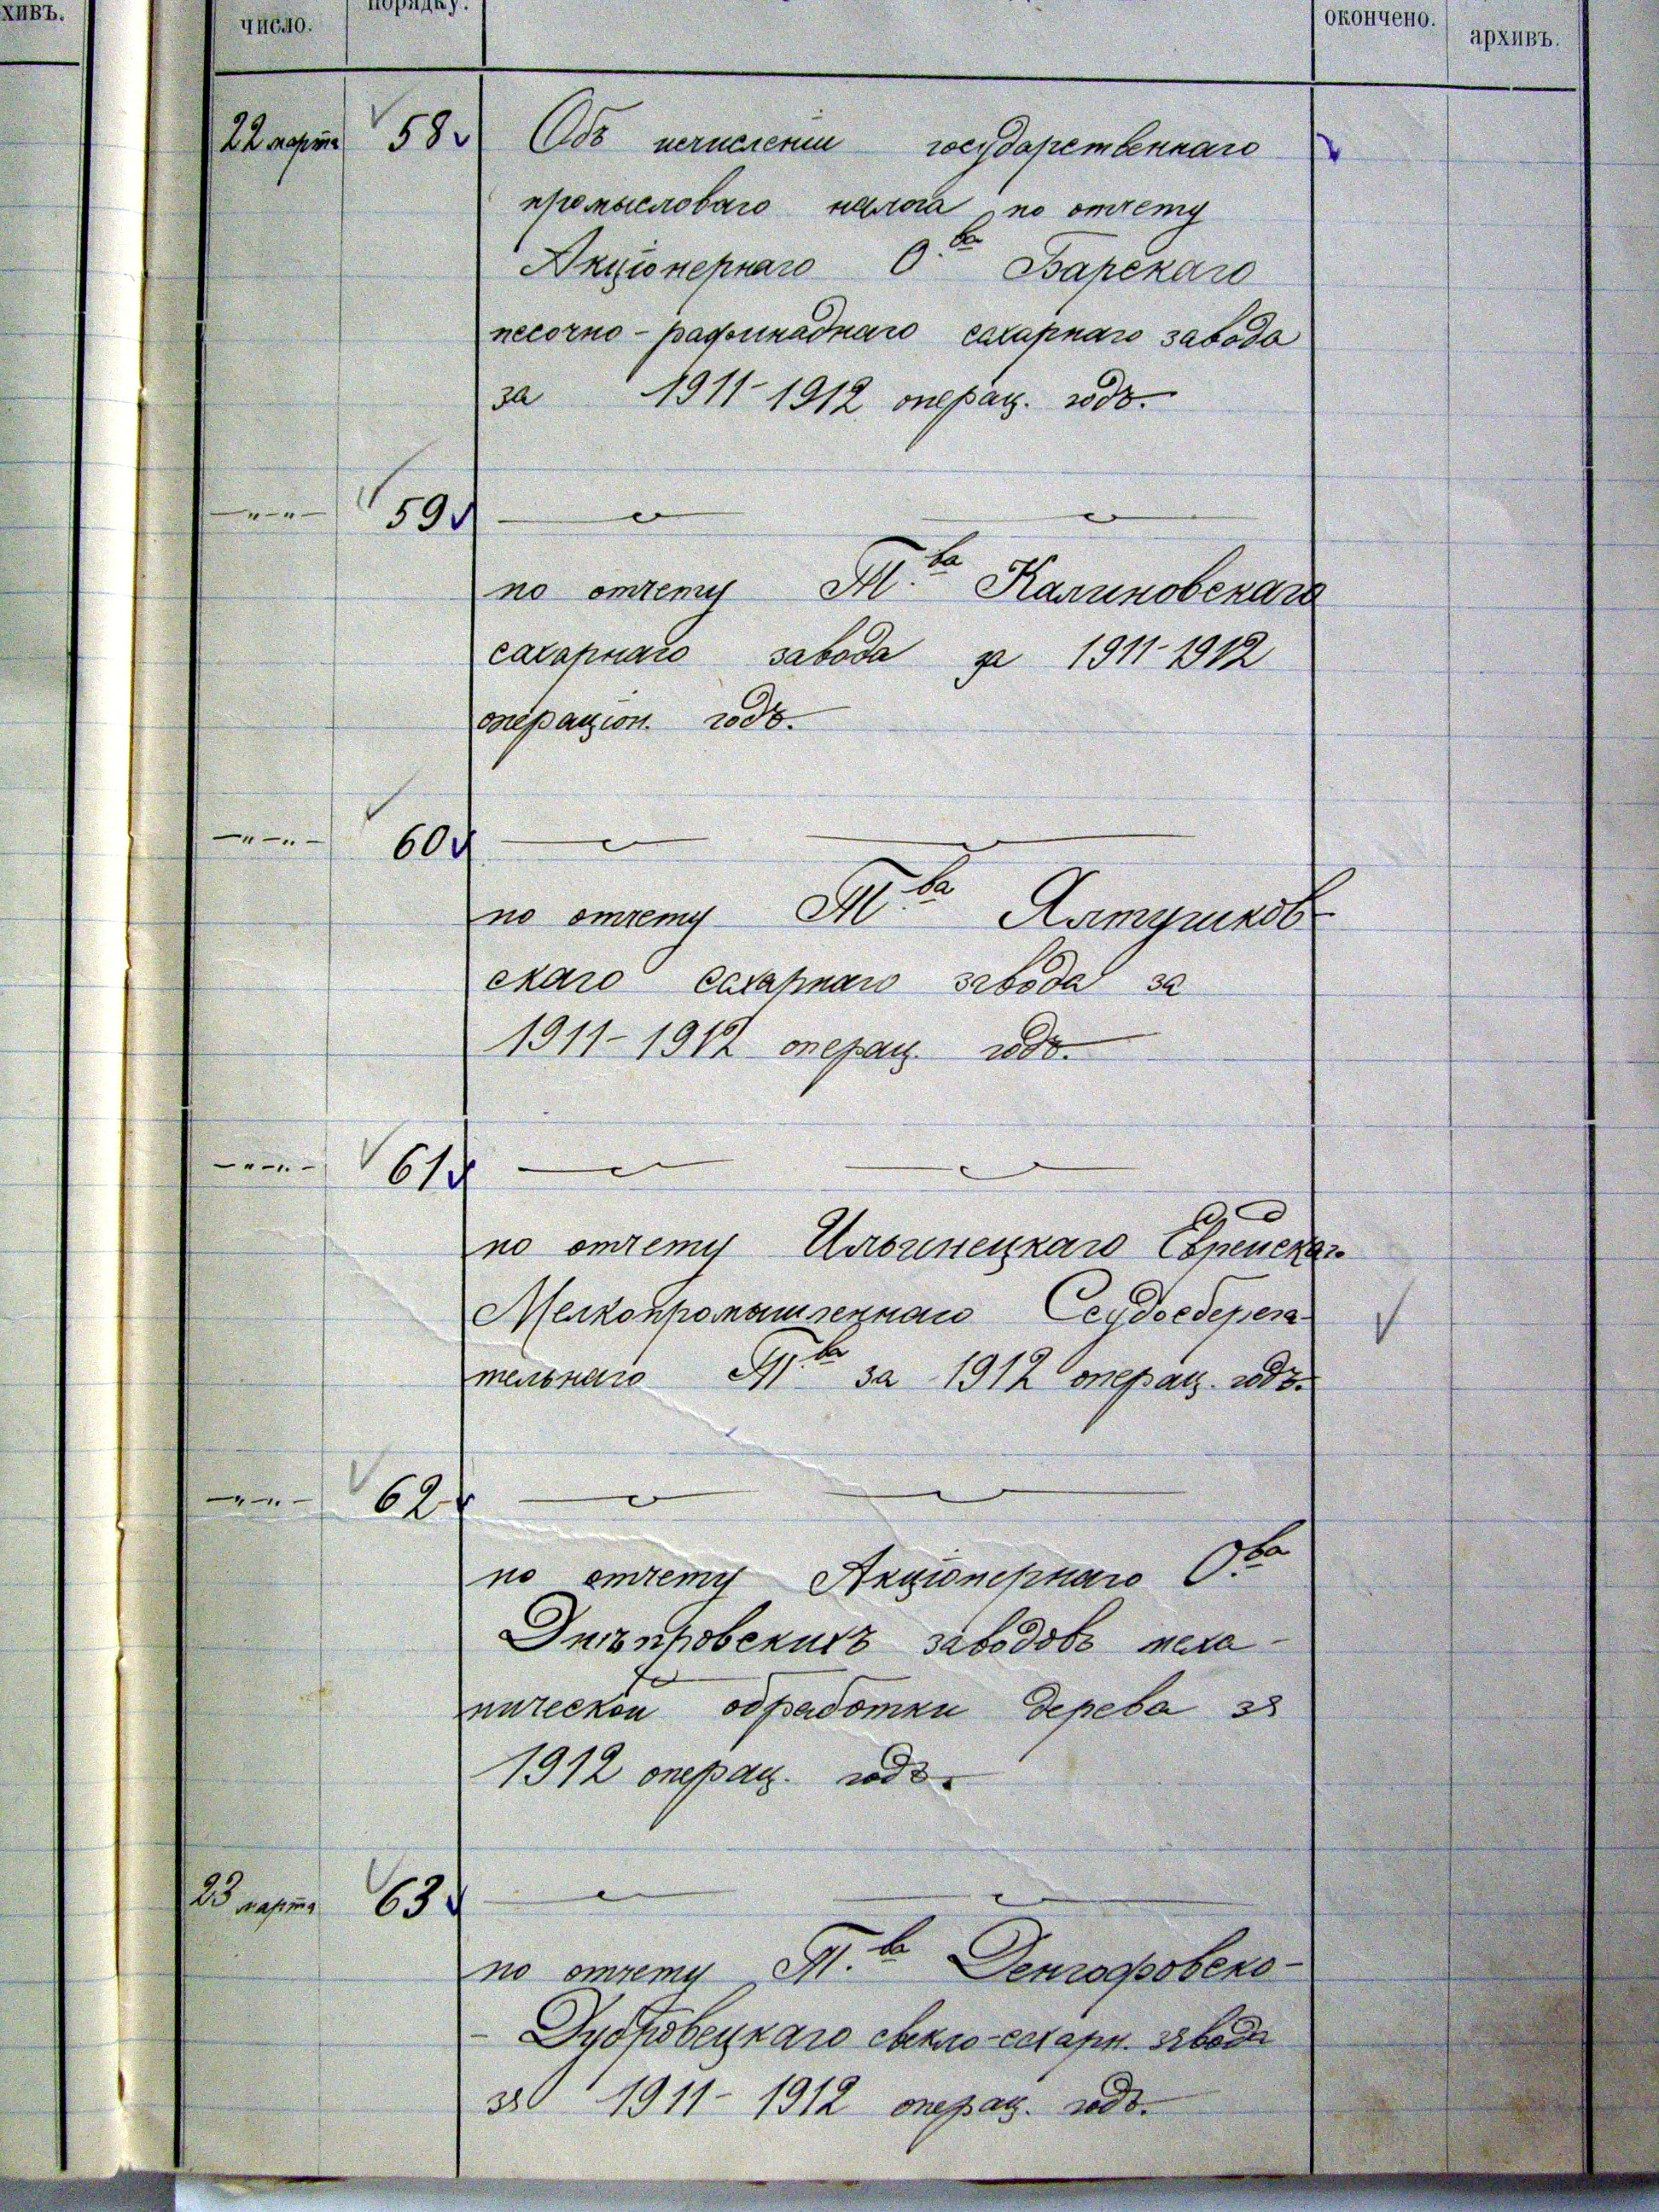 хивъ.
число.
порядку.
окончено.
архивъ.
22 марта 58 Объ исчисленіи государственнаго
промысловаго налога по отчету
Акціонернаго О.ва Барскаго
песочно-рафинаднаго сахарнаго завода
за 1911-1912 операц. годъ.
—"—"— 59 — —
по отчету Т.ва Калиновскаго
сахарнаго завода за 1911-1912
операціон. годъ.
—"—"— 60 — —
по отчету Т.ва Ялтушков-
скаго сахарнаго завода за
1911-1912 операц. годъ.
—"—"— 61 — —
по отчету Ильинецкаго Еврейскаго
Мелкопромышленнаго Ссудосберега-
тельнаго Т.ва за 1912 операц. годъ.
—"—"— 62 — —
по отчету Акціонернаго О.ва
Днѣпровскихъ заводовъ меха-
нической обработки дерева за
1912 операц. годъ.
23 марта 63 — —
по отчету Т.ва Денгофовско-
- Дубровецкаго свекло-сахарн. завода
за 1911-1912 операц. годъ.